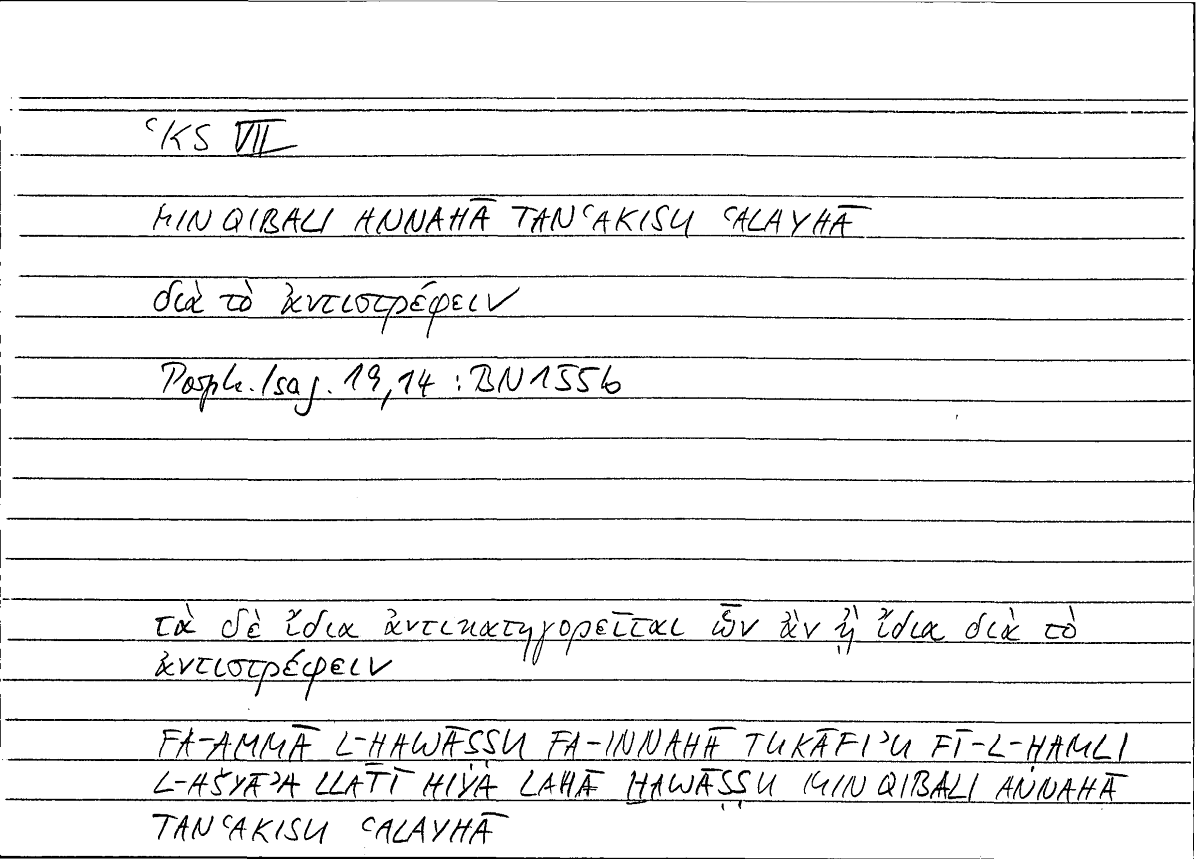 ʿKS VII
MIN QIBALI ANNAHĀ TANʿAKISU ʿALAYHĀ
διὰ τὸ ἀντιστρέφειν
Porph. Isag. 19,14 : BN 155b
τὰ δὲ ἴδια ἀντικατηγορεῖται ὧν ἂν ᾖ ἴδια διὰ τὸ
ἀντιστρέφειν
FA-AMMĀ L-HAWĀṢṢU FA-INNAHĀ TUKĀFIʾU FĪ-L-ḤAMLI
L-AŠYĀʾA LLATĪ HIYA LAHĀ ḪAWĀṢṢU MIN QIBALI ANNAHĀ
TANʿAKISU ʿALAYHĀ